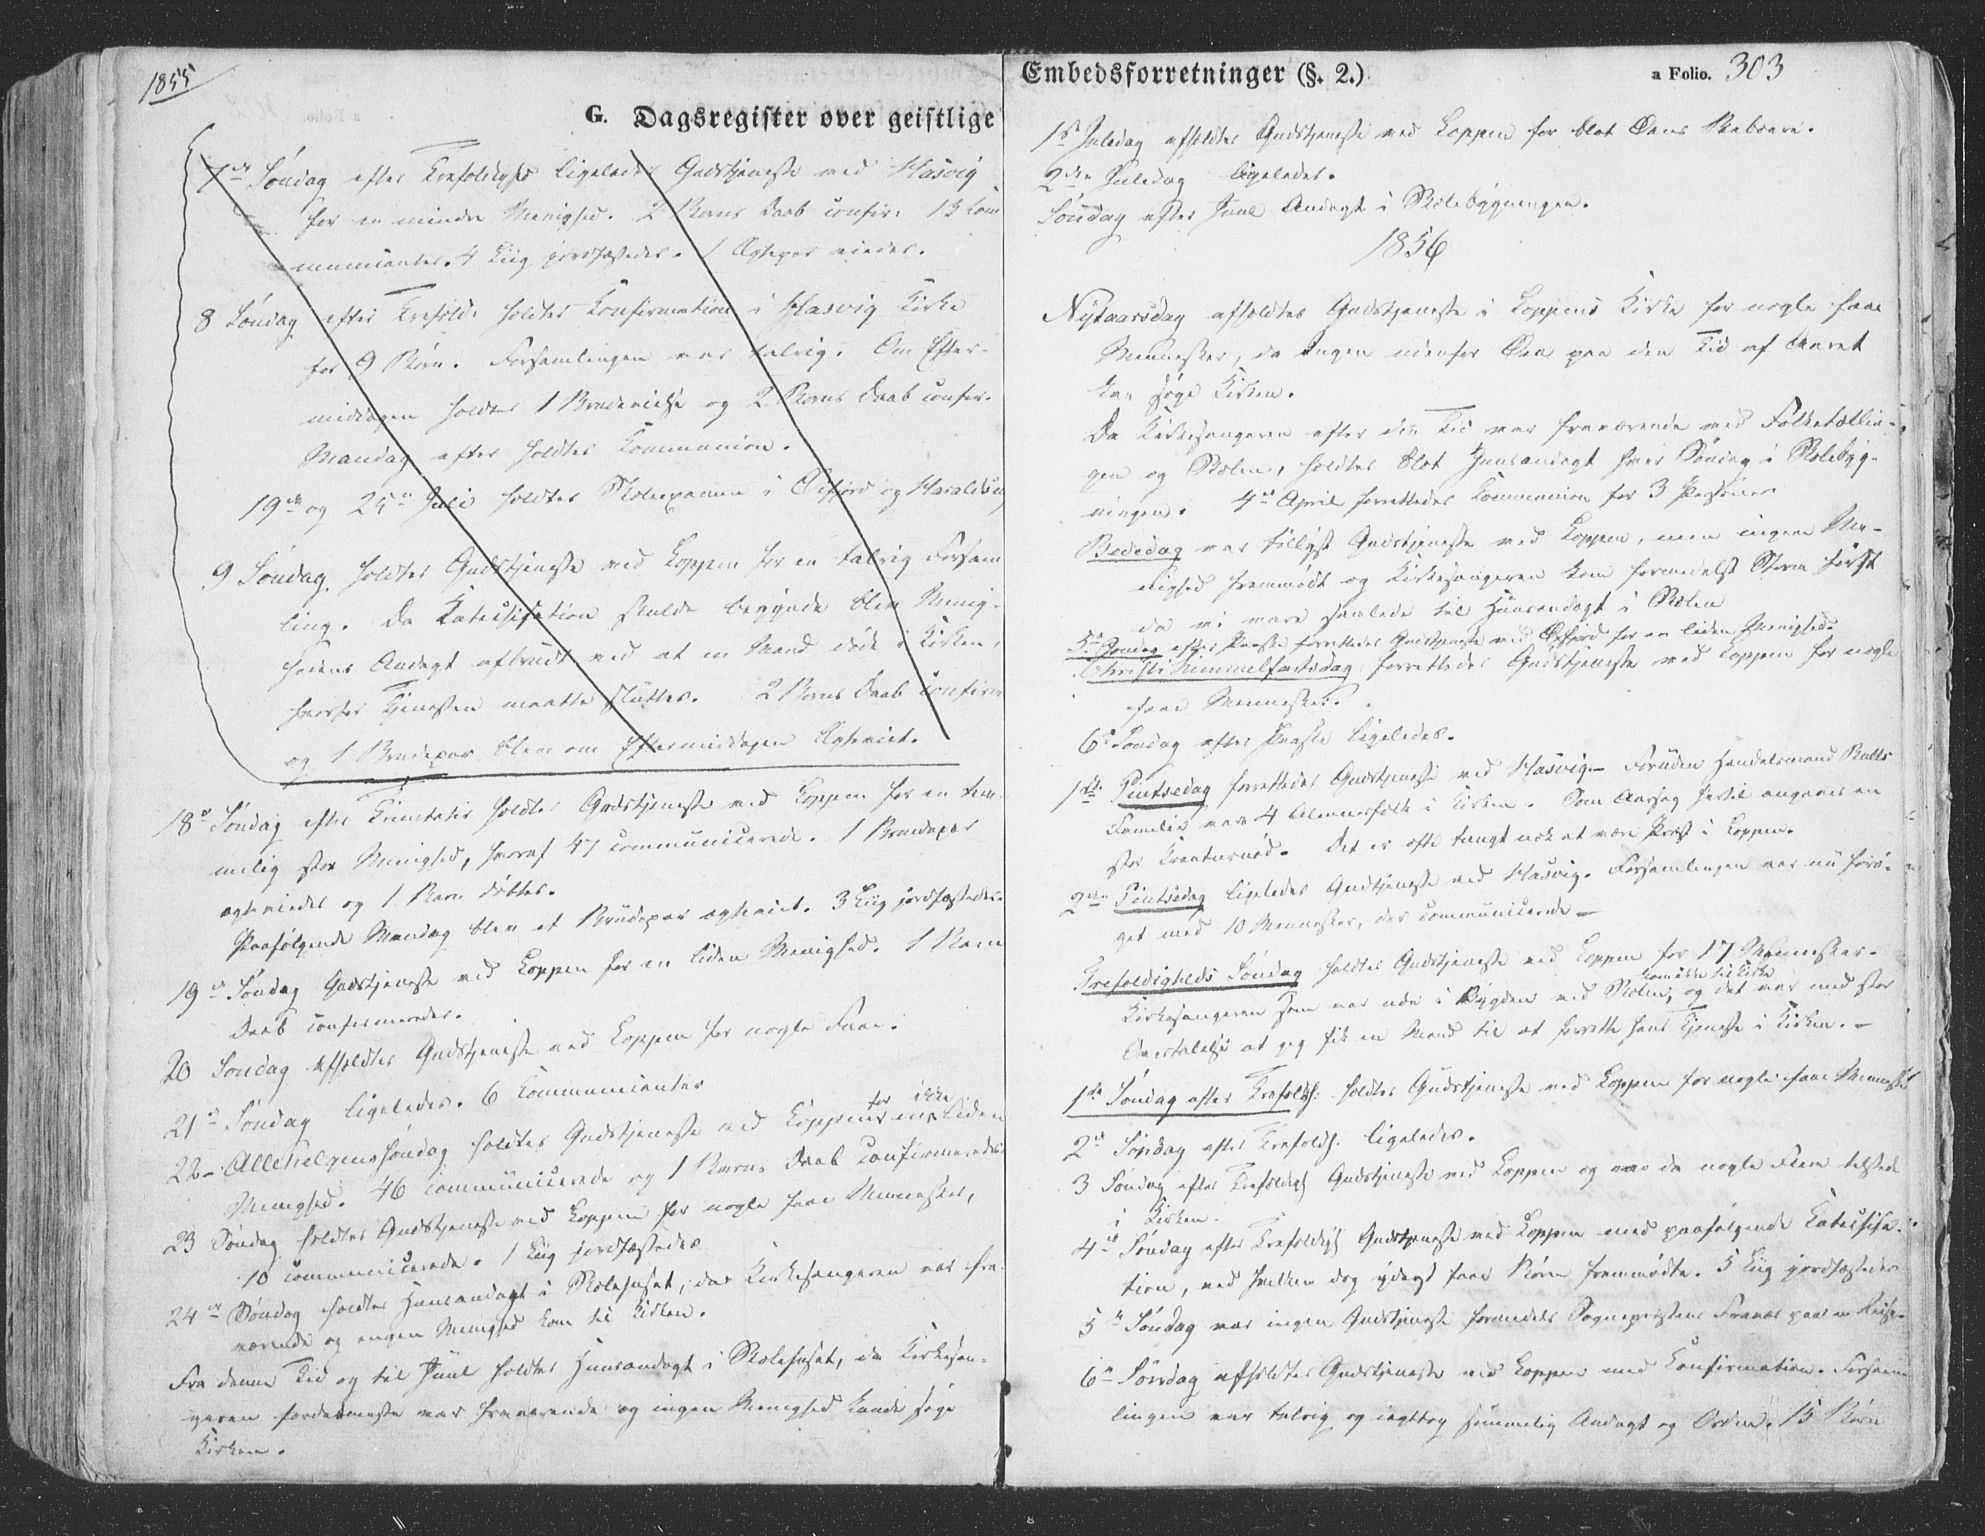 1855
G. Dagsregister over geistlige
7de Søndag efter Trefoldighd ligeledes Gudstjeneste ved Hasvig
for en mindre Menighed. 2 Børns Daab confir: 13 Com
municanter. 4 Liig jordfæstedes. 1 Ægtepar viedes.
8 Søndag efter Trefold: holdtes Confirmation i Hasvig Kirke
for 9 Børn. Forsamlingen var talrig. Om Efter-
middagen holdtes 1 Brudevielse og 2 Børns Daab confir.
Mandag efter holdtes Communion.
19de og 25de Juli holdtes Skoleexamen i Øxfjord og
9 Søndag. holdtes Gudstjeneste ved Loppen for en talrig Forsam
ling. Da Katechisation skulde begynde blev Menig-
hedens Andagt afbrudt ved at en Mand døde i Kirken,
hvorfor Tjenesten maatte sluttes. 2 Børns Daab confirm
og 1 Brudepar blev om Eftermiddagen Ægteviet.
18de Søndag efter Trinitatis holdtes Gudstjeneste ved Loppen for en tem-
melig stor Menighed, hvoraf 47 communicerede. 1 Brudepar
ægteviedes og 1 Barn døbtes.
Paafølgende Mandag blev et Brudepar ægteviet. 3 Liig jordfæstedes.
19de Søndag Gudstjeneste ved Loppen for en liden Menighed. 1 Barns
Daab confirmeredes.
20 Søndag afholdtes Gudstjeneste ved Loppen for nogle Faae.
21de Søndag ligeledes. 6 Communicanter
22- Allehelgenssøndag holdtes Gudstjeneste ved Loppen for en ikke liden
Menighed. 46 communicerede og 1 Barns Daab confirmeredes
23 Søndag holdtes Gudstjeneste ved Loppen for nogle faae Mennesker,
10 communicerede. 1 Liig jordfæstedes
24de Søndag holdtes Huusandagt i Skolehuset, da Kirkesangeren var fra-
værende og ingen Menighed kom til Kirken.
Fra denne Tid og til Juul holdtes Huusandagt i Skolehuset, da Kirkesan-
geren fordetmeste var fraværende og ingen Menighed kunde søge
Kirken.
Embedsforretninger (§. 2.)
a Folio. 303
1ste Juledag afholdtes Gudstjeneste ved Loppen for blot Øens Beboere.
2den Juledag ligeledes.
Søndag efter Juul Andagt i Skolebygningen.
1856
Nytaarsdag afholdtes Gudstjeneste i Loppens Kirke for nogle faae
Mennesker, da Ingen udenfor Øen paa den Tid af Aaret
kan søge Kirken.
Da Kirkesangeren efter den Tid var fraværende ved Folketællin-
gen og Skolen, holdtes blot Huusandagt hver Søndag i Skolebyg-
ningen. 4de April forrettedes Communion for 3 Personer
Bededag var tillyst Gudstjeneste ved Loppen, men ingen Me-
nighed fremmødt og Kirkesangeren kom formedelst Storm først
da vi vare samlede til Huusandagt i Skolen
5te Søndag efter Paaske forrettedes Gudstjeneste ved Øxfjord for en liden Menighed
Christi Himmelfartsdag forrettedes Gudstjeneste ved Loppen for nogle
faae Mennesker.
6te Søndag efter Paaske ligeledes.
1ste Pintsedag forrettedes Gudstjeneste ved Hasvig. Foruden Handelsmand Bulls
Familie vare 4 Almuesfolk i Kirken. Som Aarsag hertil angaves en
stor Kreaturnød. Det er ofte tungt nok at være Præst i Loppen.
2den Pintsedag ligeledes Gudstjeneste ved Hasvig. Forsamlingen var nu forø-
get med 10 Mennesker, der communicerede -
Trefoldigheds Søndag holdtes Gudstjeneste ved Loppen for 17 Mennesker.
Kirkesangeren som var ude i Bygden ved Skolen, kom ikke til Kirke og det var med stor
Overtalelse at jeg fik en Mand til at forrette hans Tjeneste i Kirken. -
1ste Søndag efter Trefoldh: holdtes Gudstjeneste ved Loppen for nogle faae Mennesker
2de Søndag efter Trefoldh. ligeledes.
3 Søndag efter Trefoldigh Gudstjeneste ved Loppen og var da nogle Flere tilstede
i Kirken.
4de Søndag efter Trefoldigh Gudstjeneste ved Loppen med paafølgende Katechisa-
tion, ved hvilken dog ydest faae Børn fremmødte. 5 Liig jordfæstedes
5te Søndag var ingen Gudstjeneste formedelst Sognepræstens Fravær paa en Reise.
6te Søndag afholdtes Gudstjeneste ved Loppen med Confirmation. Forsam-
lingen var talrig og iagttog sømmelig Andagt og Orden. 15 Børn